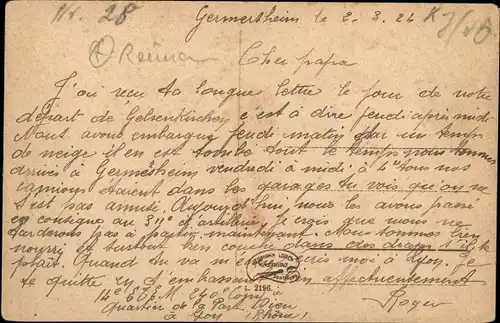 Germersheim le 2-3.24
Cher papa
J'ai reçu ta longue lettre le jour de notre
départ de Gelsenkirchen c'est à dire jeudi après midi
Nous avons embarqué jeudi matin par un temps
de neige il en est tombé tout le temps nous sommes
arrivés à Germesheim vendredi à midi à 4 tous nos
camions étaient dans les garages tu vois qu'on ne
s'est pas amusé. Aujourd'hui nous les avons passé
en consigne au 311e d'artillerie, je crois que nous ne
tarderons pas à partir maintenant. Nous sommes bien
nourri et surtout bien couché dans des draps s'il te
plaît. Quand tu va m'écris moi à Lyon. Je
te quitte en t'embrassant affectueusement
Roger
2196.
Quartier de la Part Dieu
à Lyon (Rhône)